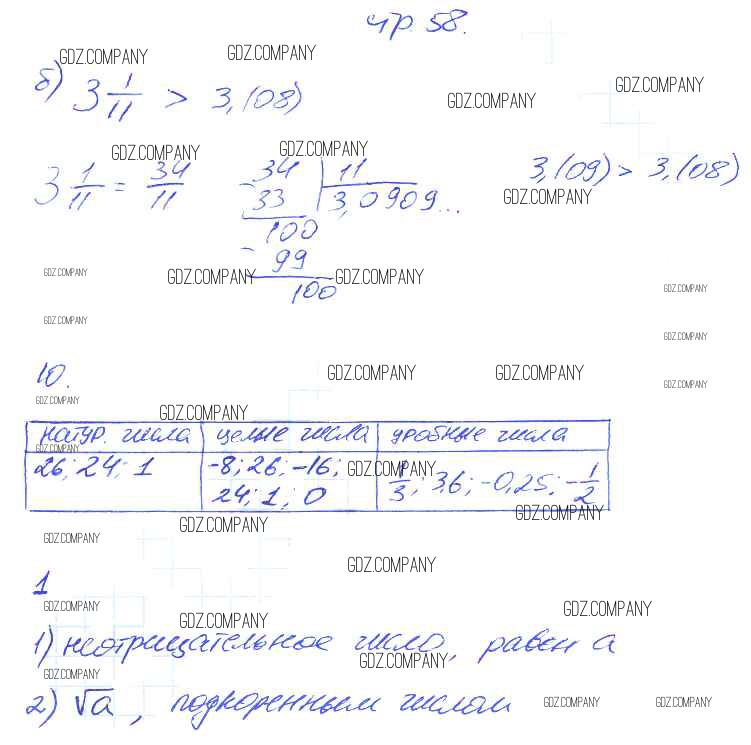 стр. 58.
GDZ.COMPANY GDZ.COMPANY GDZ.COMPANY
б) 3 1/11 > 3,(08) GDZ.COMPANY
GDZ.COMPANY GDZ.COMPANY
3 1/11 = 34/11 34 | 11 3,(09) > 3,(08)
- 33 3,0909... GDZ.COMPANY
100
- 99
GDZ.COMPANY GDZ.COMPANY GDZ.COMPANY
100 GDZ.COMPANY
GDZ.COMPANY GDZ.COMPANY
10. GDZ.COMPANY GDZ.COMPANY GDZ.COMPANY
GDZ.COMPANY GDZ.COMPANY
натур. числа целые числа дробные числа
GDZ.COMPANY
26; 24; 1 -8; 26; -16; GDZ.COMPANY 1/3; 3,6; -0,25; -1/2
24; 1; 0
GDZ.COMPANY GDZ.COMPANY
GDZ.COMPANY GDZ.COMPANY
1
GDZ.COMPANY GDZ.COMPANY GDZ.COMPANY
1) неотрицательное число, равен а
GDZ.COMPANY GDZ.COMPANY
2) √a, подкоренным числом GDZ.COMPANY GDZ.COMPANY